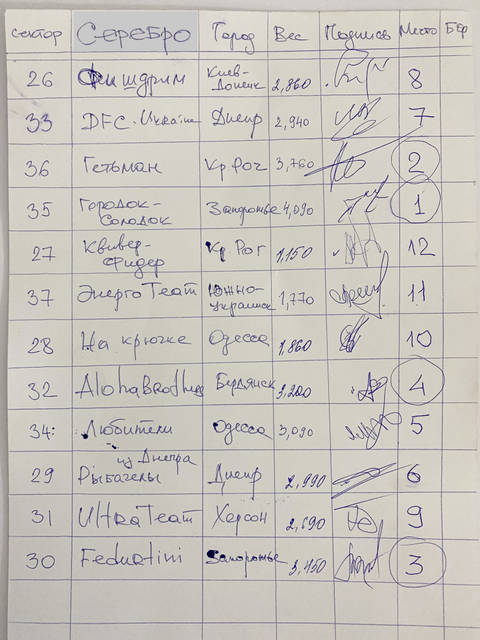 Сектор Серебро Город Вес Подпись Место
26 Фишдрим Киев-Донецк 2,860 8
33 DFC-Ukraine Днепр 2,940 7
36 Гетьман Кр.Рог 3,760 2
35 Городок-Солодок Запорожье 4,090 1
27 Квивер-Фидер Кр.Рог 1,150 12
37 Энерго Team Южно-украинск 1,770 11
28 На крючке Одесса 1,860 10
32 Бердянск 3,200 4
34: Любители Одесса 3,090 5
29 Рыбагелы из Днепра Днепр 2,990 6
31 Ultra Team Херсон 2,690 9
30 Запорожье 3,450 3